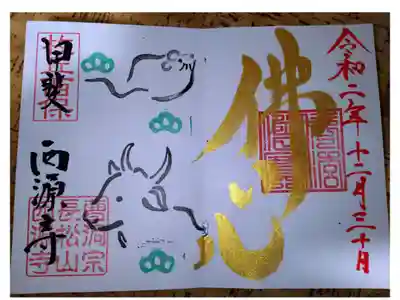 令和二年十二月三十日
佛心
甲斐
西源寺
曹洞宗
長松山
西源寺